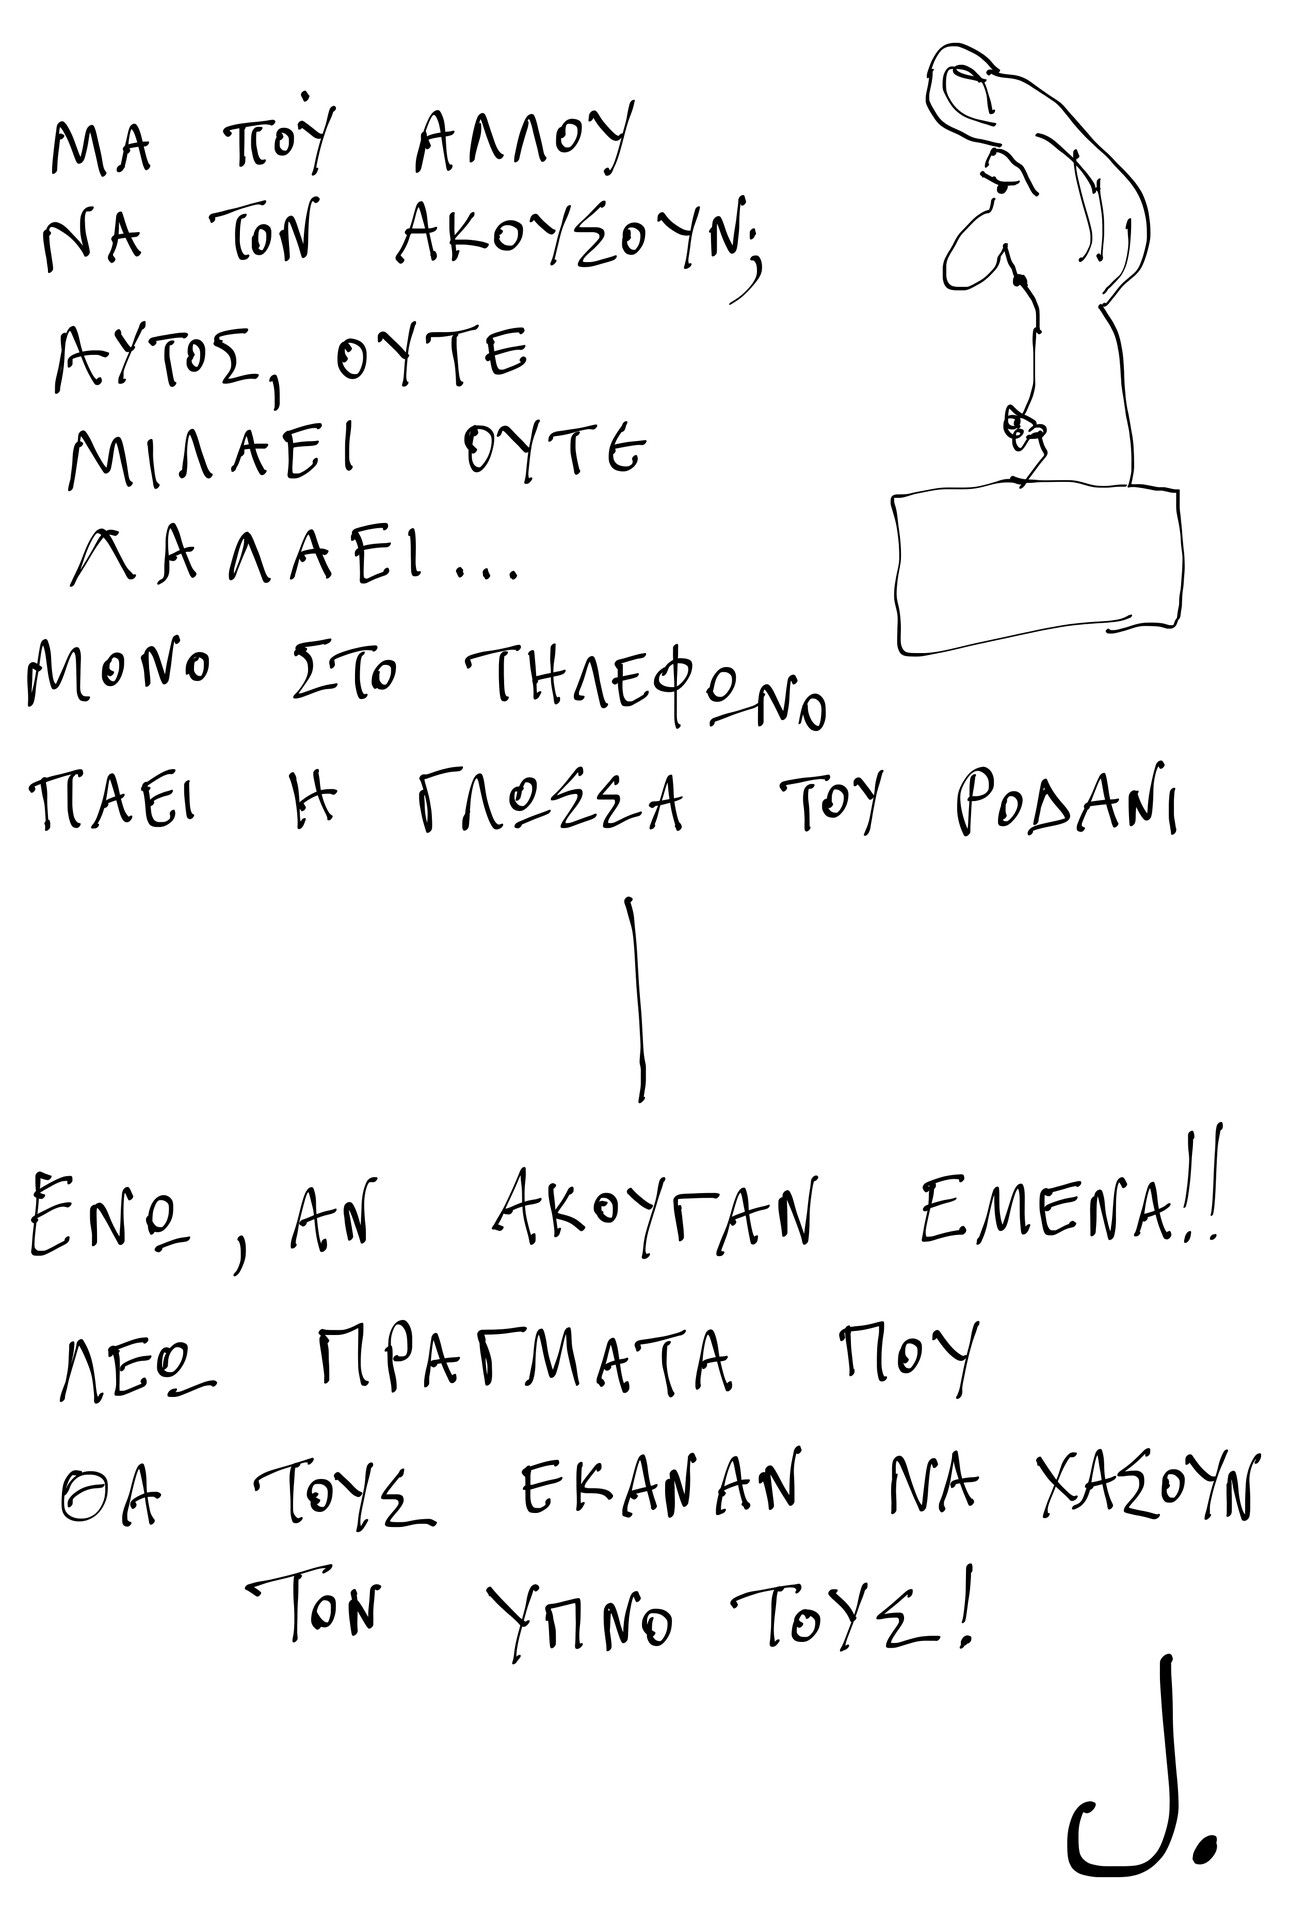 ΜΑ ΠΟΥ̇ ΑΛΛΟΥ
ΝΑ ΤΟΝ ΑΚΟΥΣΟΥΝ;
ΑΥΤΟΣ, ΟΥΤΕ
ΜΙΛΑΕΙ ΟΥΤΕ
ΛΑΛΑΕΙ...
ΜΟΝΟ ΣΤΟ ΤΗΛΕΦΩΝΟ
ΠΑΕΙ Η ΓΛΩΣΣΑ ΤΟΥ ΡΟΔΑΝΙ
ΕΝΩ, ΑΝ ΑΚΟΥΓΑΝ ΕΜΕΝΑ!!
ΛΕΩ ΠΡΑΓΜΑΤΑ ΠΟΥ
ΘΑ ΤΟΥΣ ΕΚΑΝΑΝ ΝΑ ΧΑΣΟΥΝ
ΤΟΝ ΥΠΝΟ ΤΟΥΣ!
J.